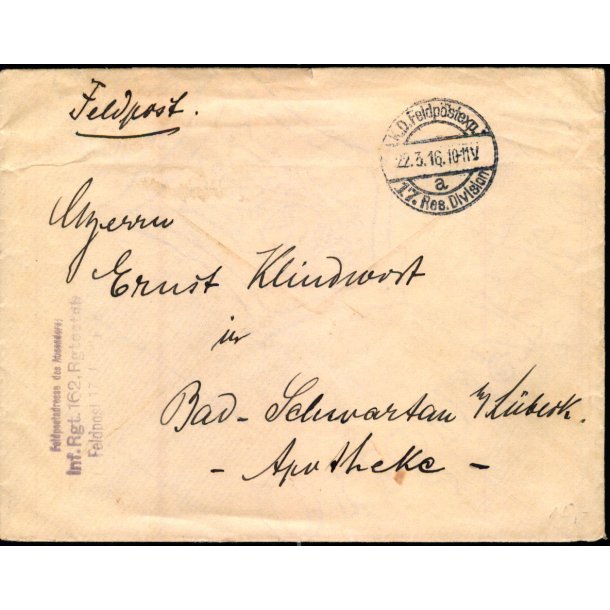 Feldpost.
K.D. Feldpostexp.
22.3.16. 10-11V
a
17. Res. Division
Herrn
Ernst Klindwort
in
Bad-Schwartau b/Lübeck.
- Apotheke -
Feldpostadresse des Absenders:
Inf. Rgt. 162, Rgtsstab
Feldpost 17.